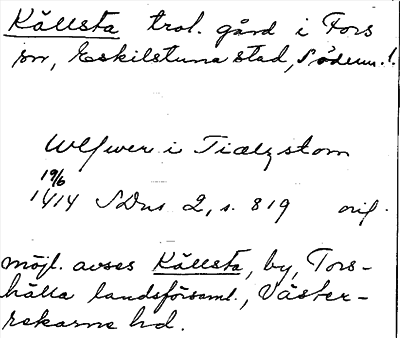 Källsta trol. gård i Fors
sn, Eskilstuna stad, Söderm. l.
Ulfwer i Tiælgstom
19/6
1414 SDns 2, s. 819 orig.
möjl. avses Källsta, by, Tors-
hälla landsförsaml., Väster-
rekarne hd.